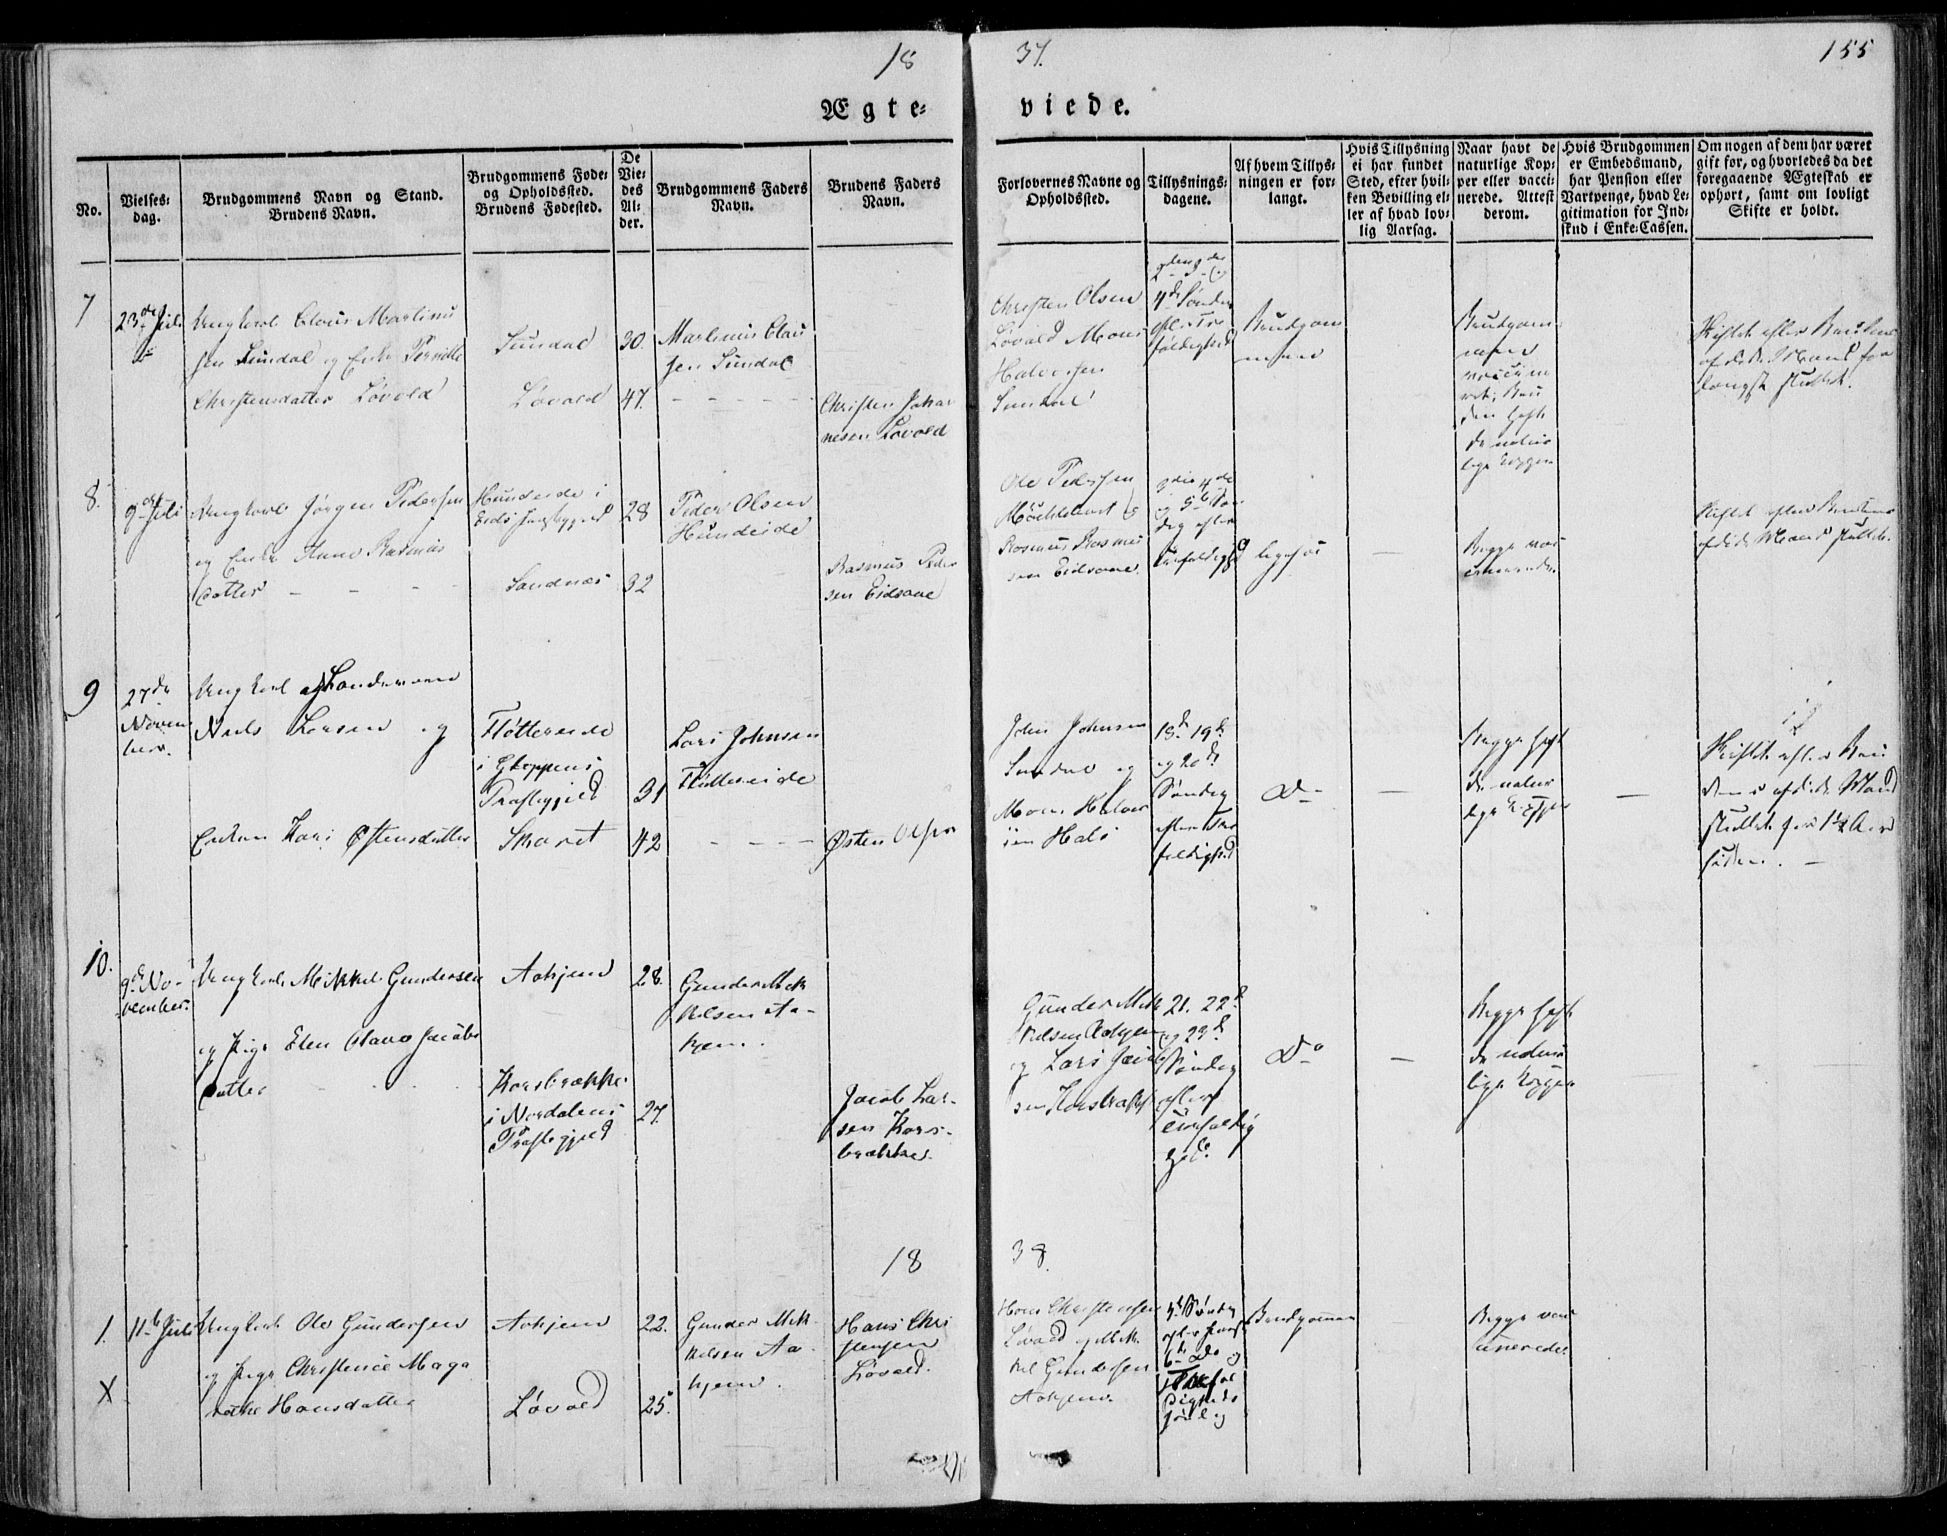 18
37.
155
Ægte=
viede.
No.
Vielses=
dag.
Brudgommens Navn og Stand.
Brudens Navn.
Brudgommens Føde=
og Opholdssted.
Brudens Fødested.
De
Vie=
des
Al=
der.
Brudgommens Faders
Navn.
Brudens Faders
Navn.
Forlovernes Navne og
Opholdssted.
Tillysnings=
dagene.
Af hvem Tillys=
ningen er for=
langt.
Hvis Tillysning
ei har fundet
Sted, efter hvil=
ken Bevilling el=
ler af hvad lov=
lig Aarsag.
Naar havt de
naturlige Kop=
per eller vacci=
nerede. Attest
derom.
Hvis Brudgommen
er Embedsmand,
har Pension eller
Vartpenge, hvad Le=
gitimation for Ind=
skud i Enke=Cassen.
Om nogen af dem har været
gift før, og hvorledes da det
foregaaende Ægteskab er
ophørt, samt om lovligt
Skifte er holdt.
7
23de Juli
Ungkarl Claus Martinu
sen Sundal og Enke Pernille
Christensdatter Løvold
Sundal
Løvold
30.
47.
Martinus Clau
sen Sundal
Christen Johan
nesen Løvold
Christen Olsen
Løvold Mons
Halvorsen
Sundal
4de Søndag
efter Tre
foldighed
Brudgom
men
Brudgom
men
vaccine
ret, Bru
den havt
de natur
lige Kopper
Skiftet efter Brudens
afdøde Mand for
længst sluttet.
8.
9de Juli
Ungkarl Jørgen Pedersen
og Enke Anne Rasmus
datter
Hundeide i
Eids Præstegjeld
Sandnæs
28
32
Peder Olsen
Hundeide
Rasmus Peder
sen Eidsaae
Ole Pedersen
og
Rasmus Rasmu
sen Eidsaae.
3die 4de
og 5te Søn
dag efter
Trefoldighed
ligesaa
Begge vac
cinerede.
Skiftet efter Brudens
afdøde Mand sluttet.
9
27de
Novem
ber.
Ungkarl og Landmand
Niels Larsen og
Enken Kari Østensdatter
Fløttereide
i Gloppens
Præstegjeld
Skaret
31
42
Lars Johnsen
Fløttereide
Østen Olsen
John Johnsen
Sundal og
Mons Halvor
sen Hals
18de 19de
og 20de
Søndag
efter Tre
foldighed
Do
Begge havt
de natur
lige Kopper
Skiftet efter Bru
dens afdøde Mand
sluttet for 1½ Aar
siden.
10.
9de No-
vember.
Ungkarl Mikkel Gundersen
og Pige Elen Olava Jacobs
datter
Aahjem
Korsbrække
i Nordalens
Præstegjeld
28.
27.
Gunder Mik
kelsen Aa-
hjem.
Jacob Lar-
sen Kors-
brække.
Gunder Mik
kelsen Aahjem
og Lars Jacob
sen Korsbrække
21. 22de
og 23de
Søndag
efter
Trefoldig
hed.
Do
Begge havt
de natur
lige Kopper
18
38.
1.
X
11te Juli
Ungkarl Ole Gundersen
og Pige Christence Maga
rethe Hansdatter
Aahjem
Løvold
22.
25.
Gunder Mik
kelsen Aa-
hjem.
Hans Chri
stensen
Løvold.
Hans Christensen
Løvold og Mik
kel Gundersen
Aahjem.
4de Søndag
efter Paaske
6te Do og
Trefol
digheds
Søndag
Brudgommen
Begge vac
cinerede.